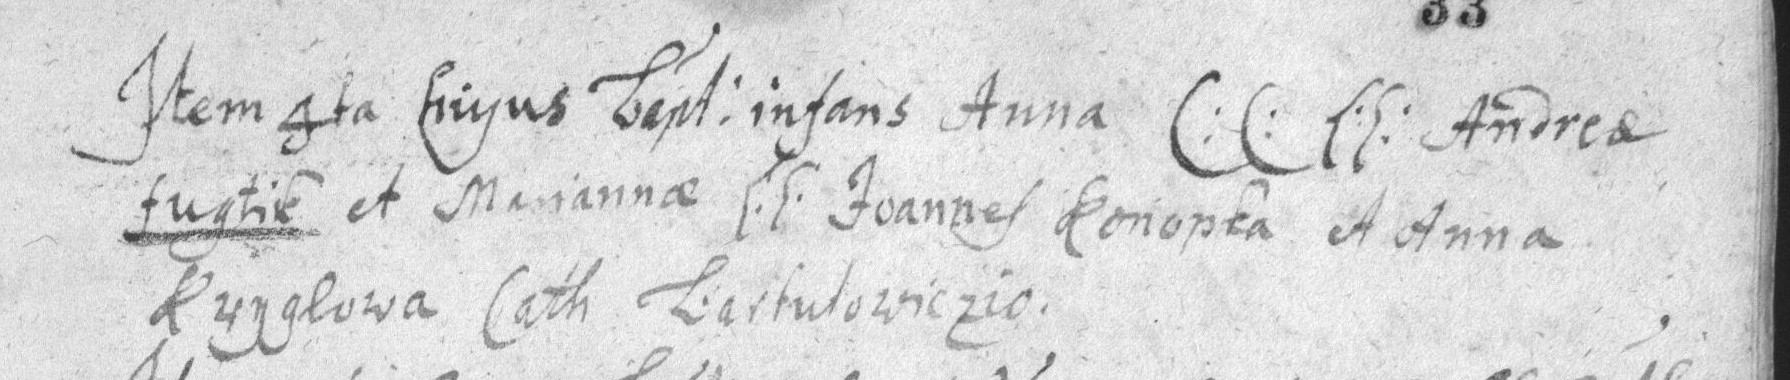 33
Item 4ta Eiusdem Bapt: infans Anna C: C: ll: Andreæ
fugtik et Mariannæ ll: Joannes Konopka et Anna
Kryglowa Cath Bartulowiczio.